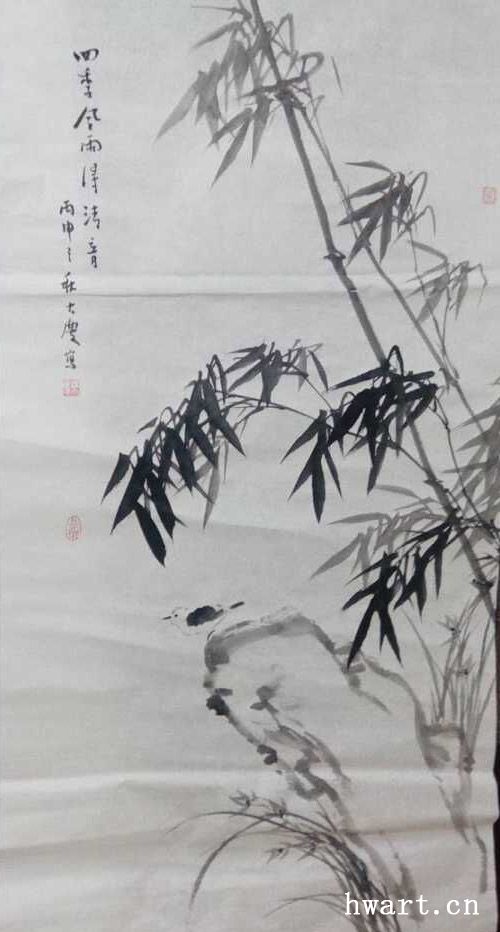 四季风雨得清音
丙申之秋大慶写
hwart.cn